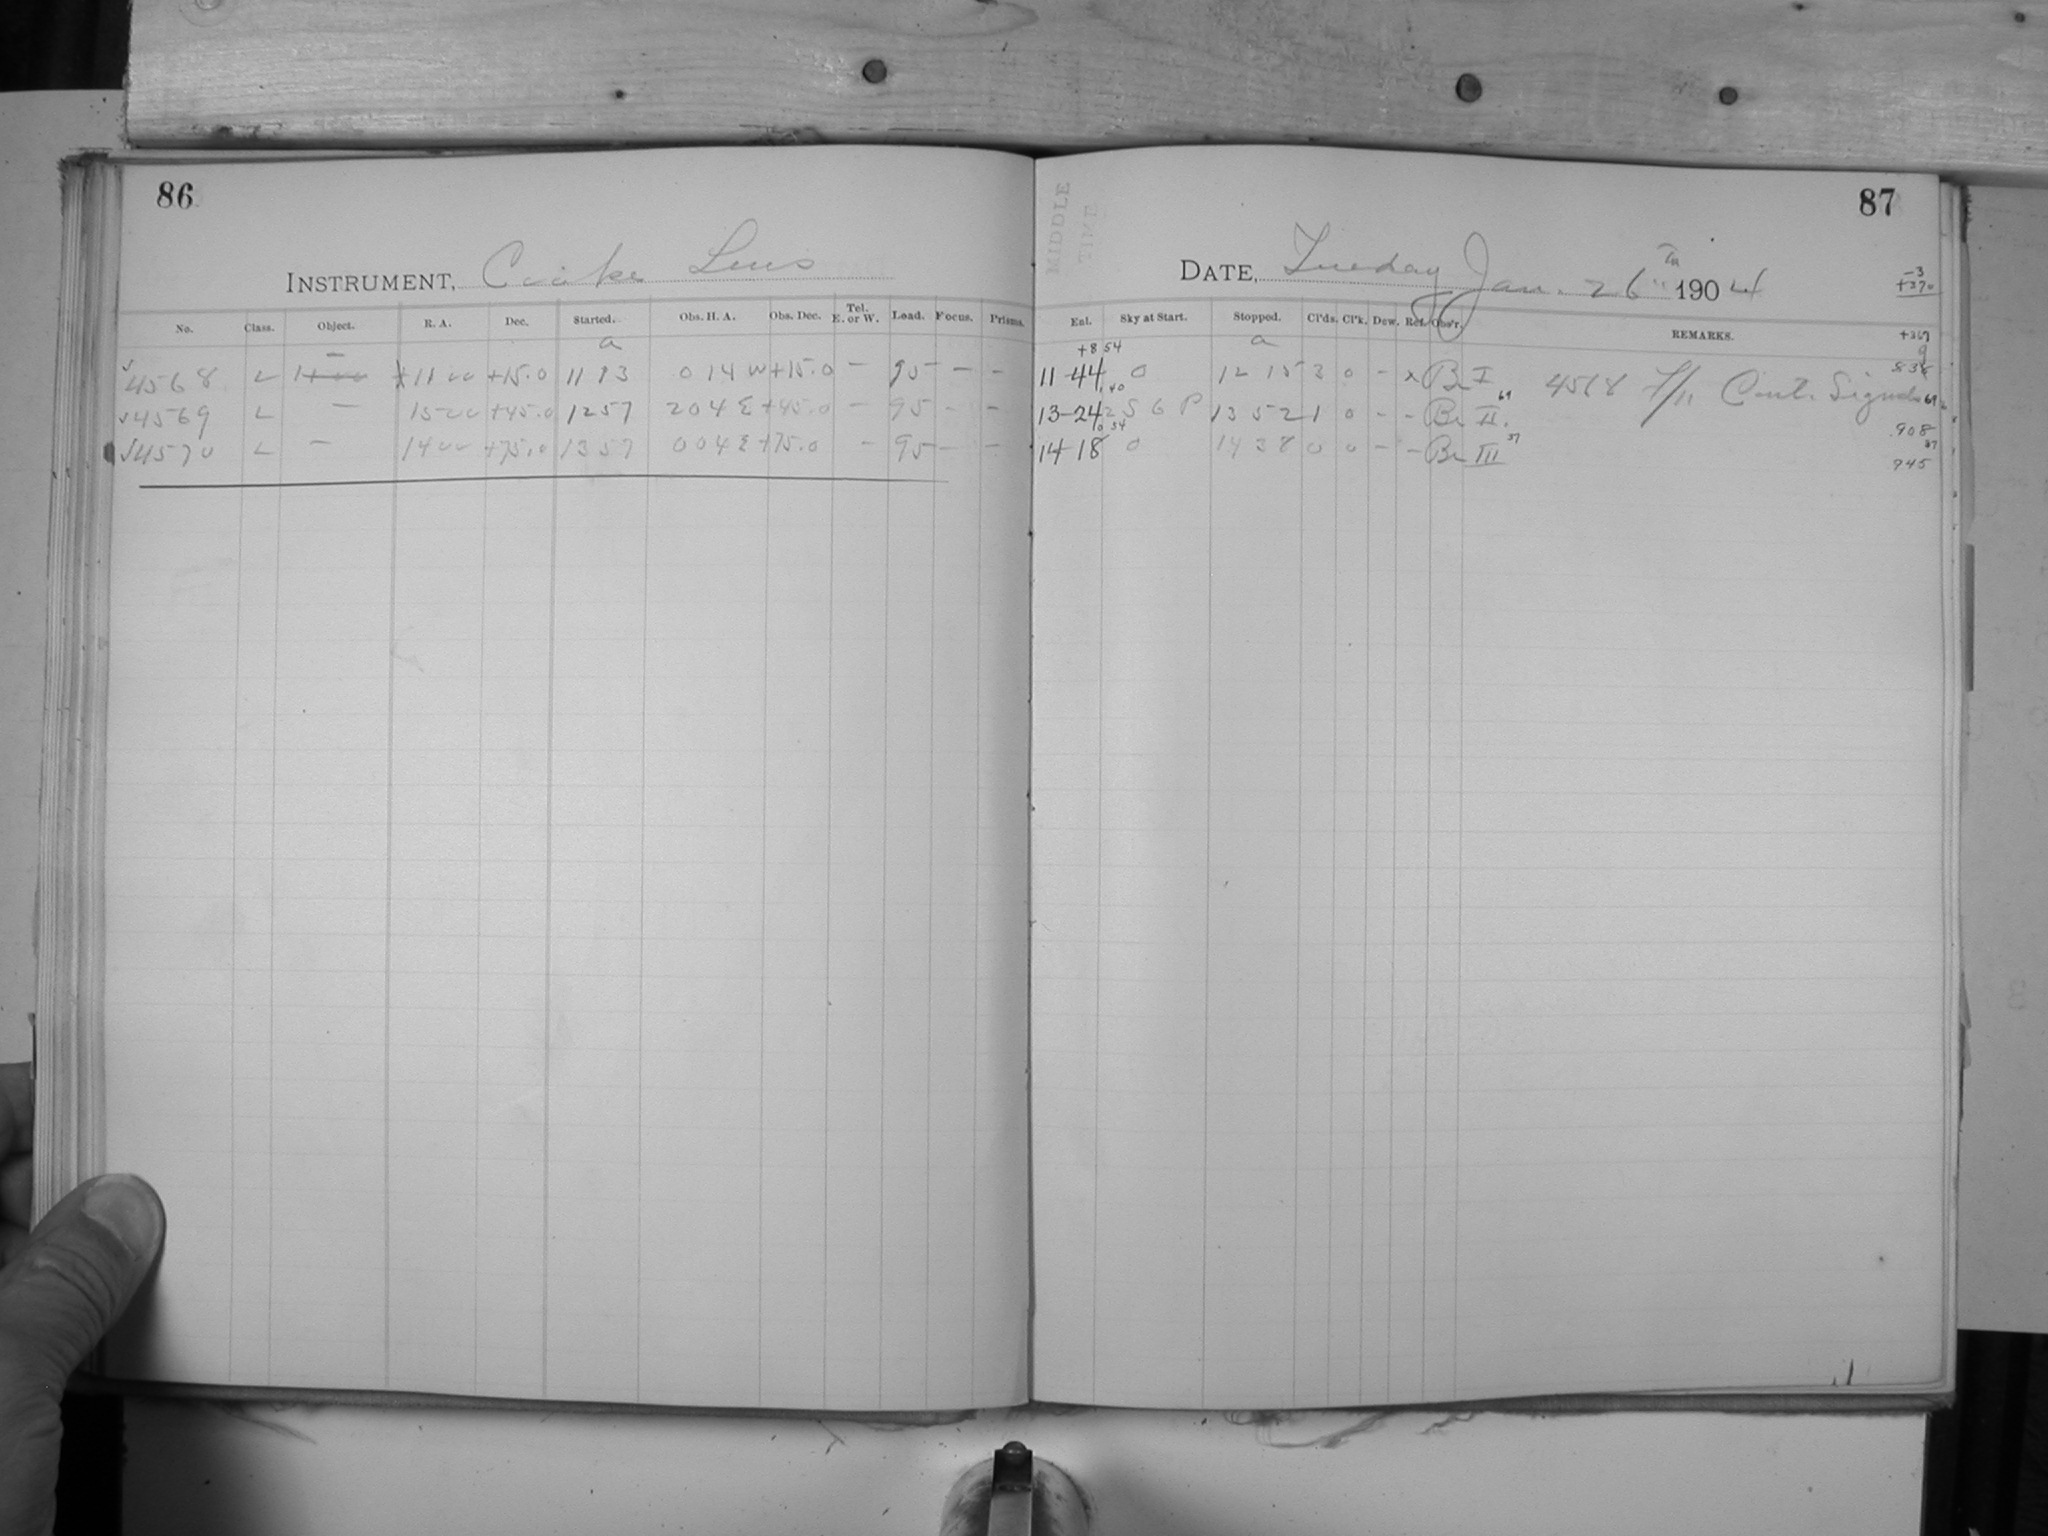 86
INSTRUMENT, Cooke Lens
No. Class. Object. R. A. Dec. Started. Obs. H. A. Obs. Dec. Tel. E. or W. Load. Focus. Prisms.
a
√4568 L — 11 00 +15.0 11 13 0 14 W +15.0 — 95 — —
√4569 L — 15 00 +45.0 12 57 2 04 E +45.0 — 95 — —
√4570 L — 14 00 +75.0 13 57 0 04 E +75.0 — 95 — —
MIDDLE
TIME
87
DATE, Tuesday Jan. 26 1904
-3
+370
Ext. Sky at Start. Stopped. Cl'ds. Cl'k. Dew. Ref. Obs'r. REMARKS.
+369
+8 54 a
11-44 0 12 15 3 0 - x Br I 4568 838
13-24 2 S G P 13 52 1 0 - - Br II. 69 69 908
14-18 0 14 38 0 0 - - Br III 37 37 945